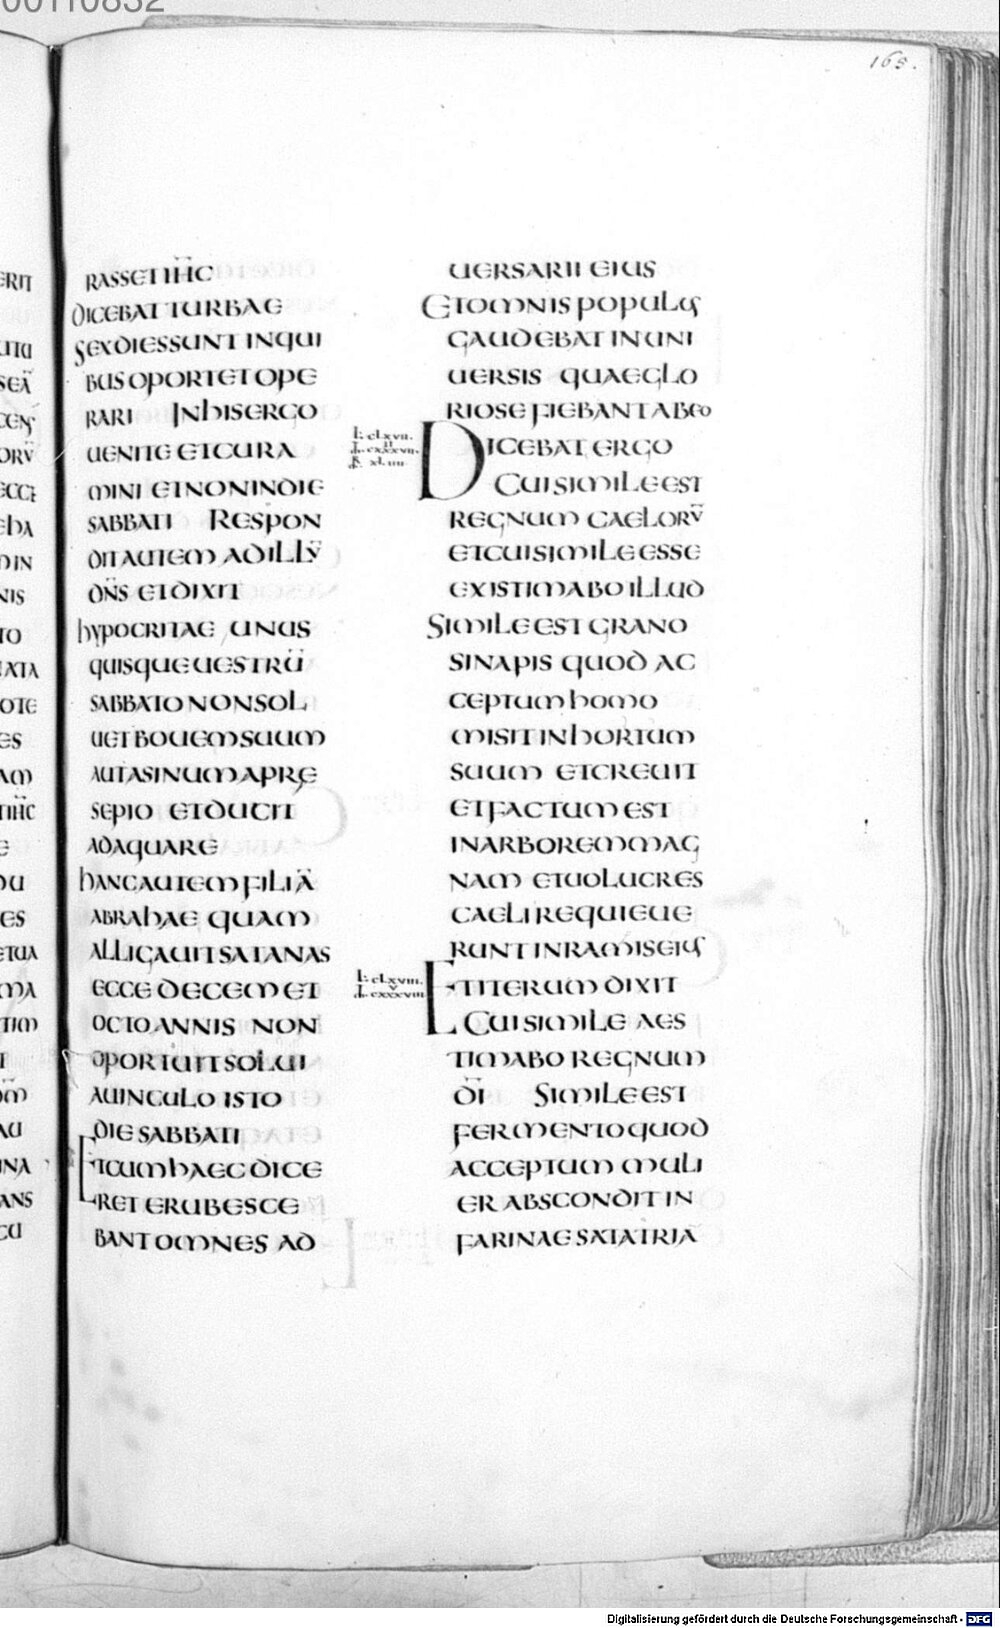 00110832
163.
RASSET IH̅C
DICEBAT TURBAE
SEX DIES SUNT IN QUI
BUS OPORTET OPE
RARI IN HIS ERGO
UENITE ET CURA
MINI ET NON IN DIE
SABBATI RESPON
DIT AUTEM AD ILLŪ
DN̅S ET DIXIT
HYPOCRITAE UNUS
QUISQUE UESTRŪ
SABBATO NON SOL
UET BOUEM SUUM
AUT ASINUM A PRE
SEPIO ET DUCIT
ADAQUARE
HANC AUTEM FILIĀ
ABRAHAE QUAM
ALLIGAUIT SATANAS
ECCE DECEM ET
OCTO ANNIS NON
OPORTUIT SOLUI
A UINCULO ISTO
DIE SABBATI
ET CUM HAEC DICE
RET ERUBESCE
BANT OMNES AD
UERSARII EIUS
ET OMNIS POPULUS
GAUDEBAT IN UNI
UERSIS QUAE GLO
RIOSE FIEBANT AB EO
L. CLXVII.
II
CXXXVII.
XLIIII
DICEBAT ERGO
CUI SIMILE EST
REGNUM CAELORŪ
ET CUI SIMILE ESSE
EXISTIMABO ILLUD
SIMILE EST GRANO
SINAPIS QUOD AC
CEPTUM HOMO
MISIT IN HORTUM
SUUM ET CREUIT
ET FACTUM EST
IN ARBOREM MAG
NAM ET UOLUCRES
CAELI REQUIEUE
RUNT IN RAMIS EIUS
L. CLXVIII.
V
CXXXVIII
ET ITERUM DIXIT
CUI SIMILE AES
TIMABO REGNUM
D̅I SIMILE EST
FERMENTO QUOD
ACCEPTUM MULI
ER ABSCONDIT IN
FARINAE SATA TRIA
Digitalisierung gefördert durch die Deutsche Forschungsgemeinschaft - DFG